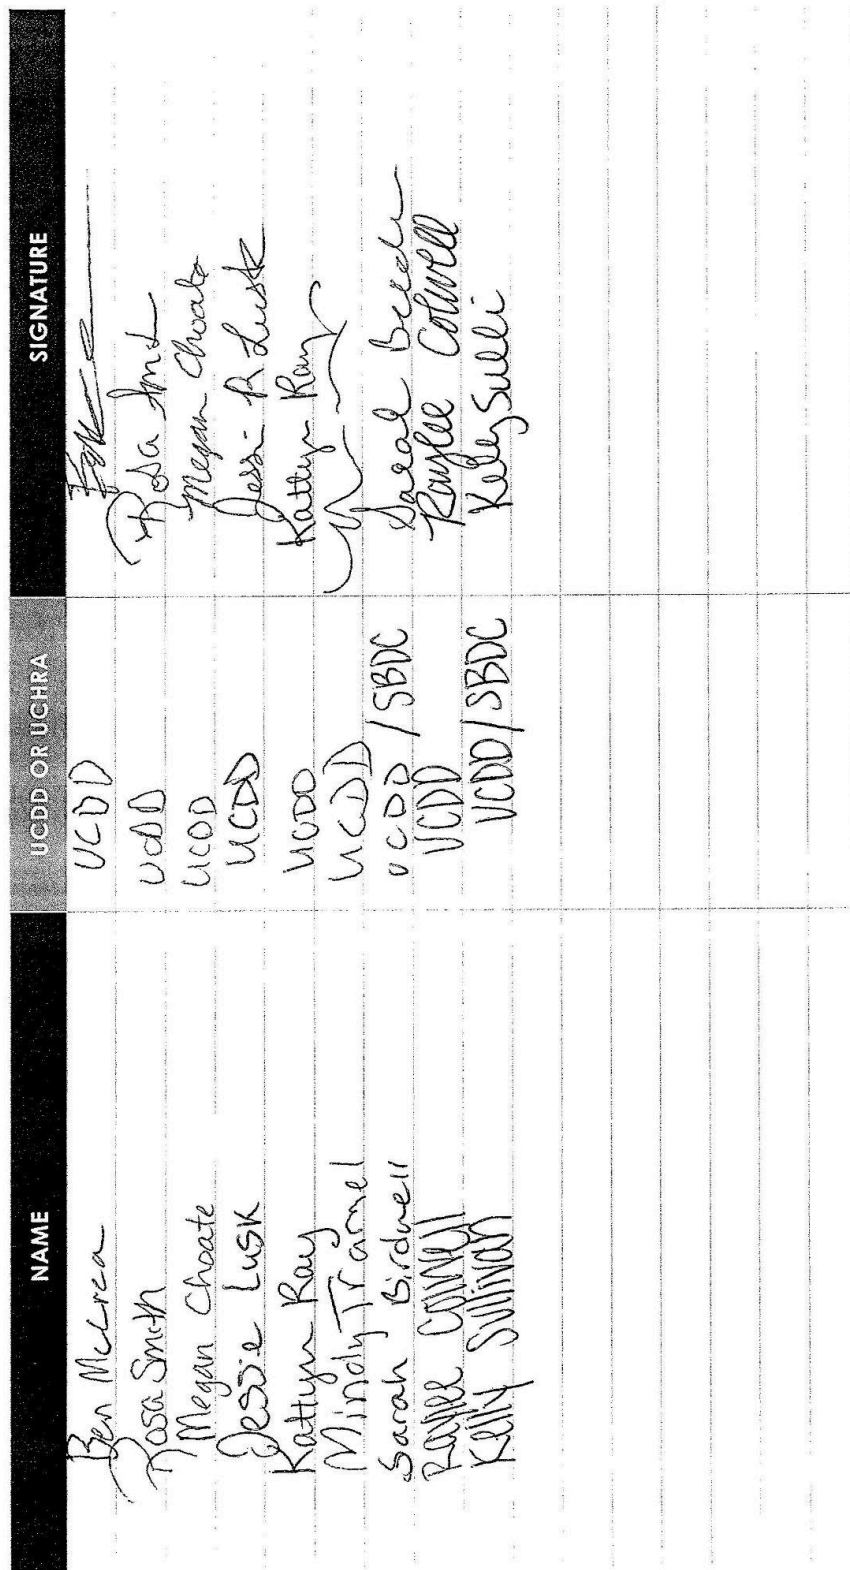 NAME UCDD OR UCHRA SIGNATURE
Ben McCrea UCDD
Rosa Smith UCDD Rosa Smith
Megan Choate UCDD Megan Choate
Jessie Lusk UCDD Jessi R Lusk
Kattyn Ray UCDD Kattyn Ray
Mindy Tramel UCDD
Sarah Birdwell UCDD / SBDC Sarah
Raylee Colwell UCDD Raylee Colwell
Kelly Sullivan UCDD / SBDC Kelly Sulli